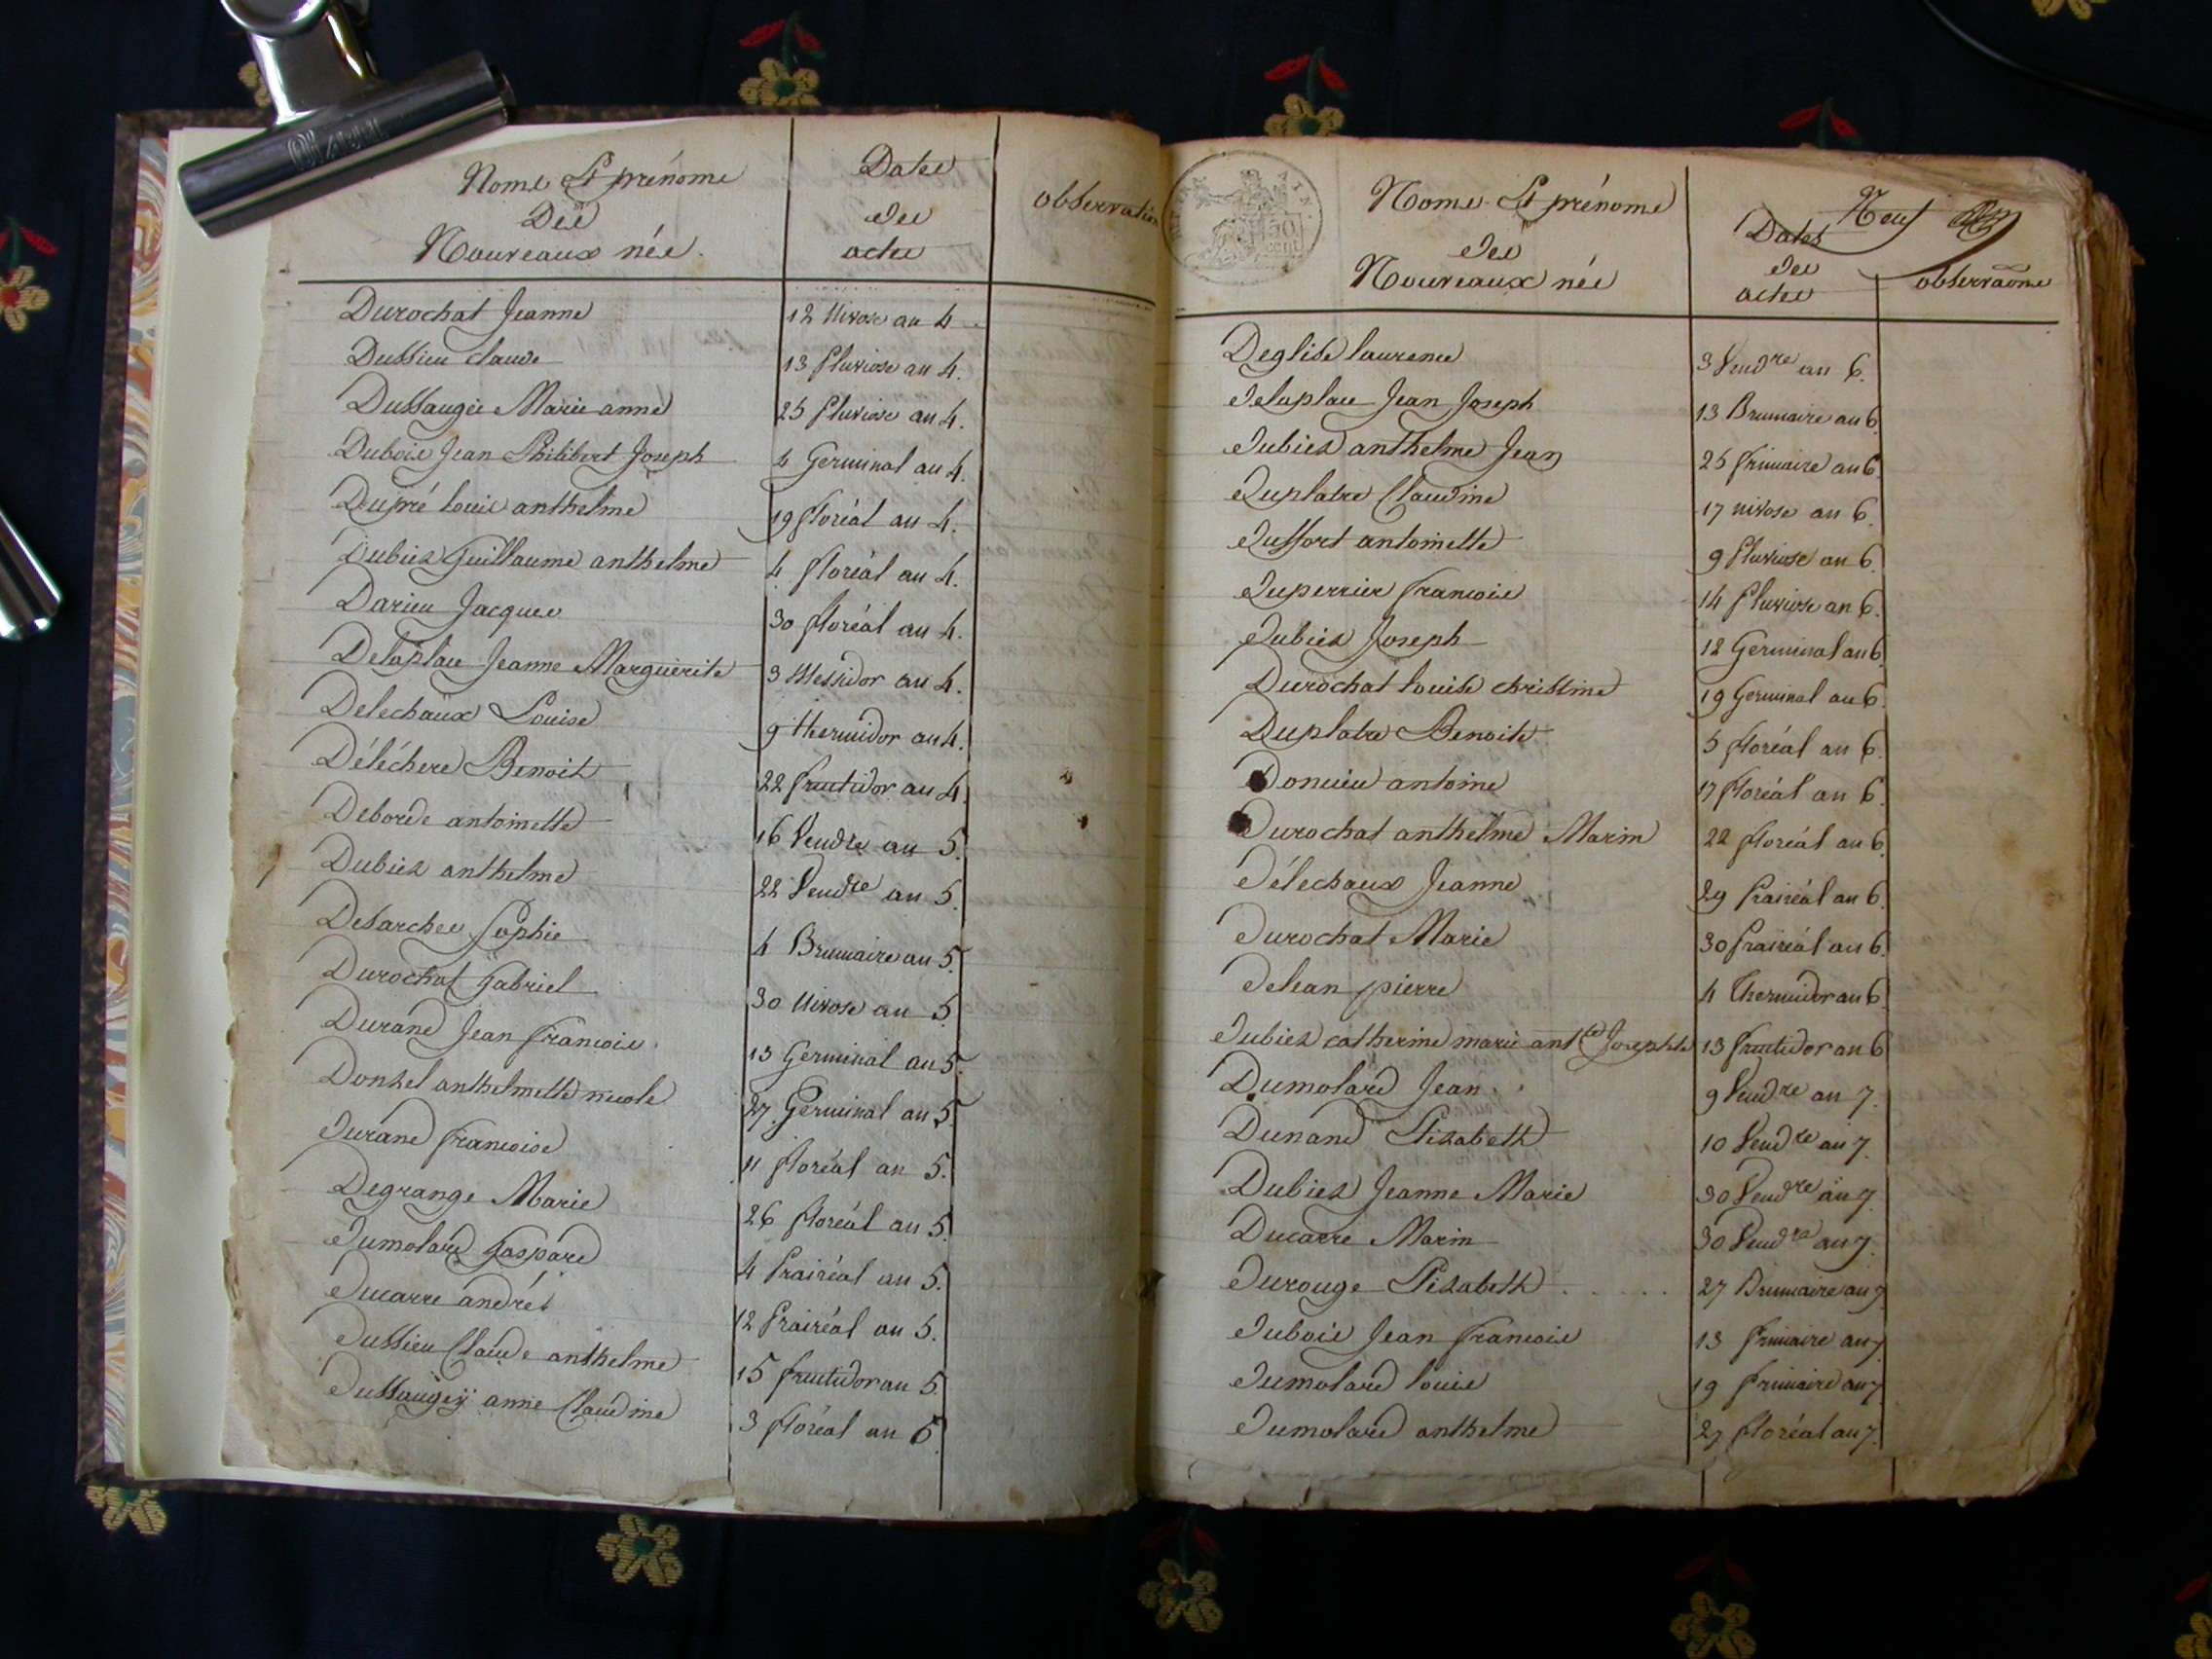 Noms Et prénoms
Des
Nouveaux nés.
Dates
des
actes
observation
Durochat Jeanne 12 Nivose an 4
Dussieu claude 13 Pluviose an 4.
Dussaugée Marie anne 25 Pluviose an 4.
Dubois Jean Philibert Joseph 4 Germinal an 4.
Dupré Louis anthelme 19 floréal an 4.
Dubiez Guillaume anthelme 4 floréal an 4.
Darieu Jacques 30 floréal an 4.
Delaplace Jeanne Marguerite 3 Messidor an 4.
Delechaux Louise 9 thermidor an 4.
Déléchere Benoit 22 fructidor an 4.
Deborde antoinette 16 Vendre an 5.
Dubiez anthelme 22 Vendre an 5.
Desarches Sophie 4 Brumaire an 5.
Durochat Gabriel 30 Nivose an 5
Durand Jean francois 13 Germinal an 5.
Donzel anthelmette nicole 27 Germinal an 5.
Durand francoise 11 floréal an 5.
Degrange Marie 26 floréal an 5.
Dumolard Gaspard 4 Prairéal an 5.
Ducarre andré 12 Prairéal an 5.
Dussieu Claude anthelme 15 fructidor an 5.
Dussaugey anne Claudine 3 floréal an 6.
Noms Et prénoms
des
Nouveaux nés
Neuf
Dates
des
actes
observaõns
Deglise laurence 3 Vendre an 6.
Delaplace Jean Joseph 13 Brumaire an 6.
Dubiez anthelme Jean 25 frimaire an 6.
Duplatre Claudine 17 nivose an 6.
Dussort antoinette 9 Pluviose an 6.
Duperrier francois 14 Pluviose an 6.
Dubiez Joseph 12 Germinal an 6.
Durochat louise christine 19 Germinal an 6.
Duplatre Benoite 5 floréal an 6.
Doncieu antoine 17 floréal an 6.
Durochat anthelme Marin 22 floréal an 6.
Délechaux Jeanne 29 Prairéal an 6.
Durochat Marie 30 Prairéal an 6.
Dehan pierre 4 Thermidor an 6.
Dubiez catherine marie antte Josephte 13 fructidor an 6
Dumolard Jean 9 Vendre an 7.
Dunand Elizabeth 10 Vendre an 7.
Dubiez Jeanne Marie 30 Vendre an 7.
Ducarre Marin 30 Vendre an 7.
Durouge Elizabeth . . . . . 27 Brumaire an 7
Dubois Jean francois 13 frimaire an 7.
Dumolard louis 19 frimaire an 7.
Dumolard anthelme 27 floréal an 7.